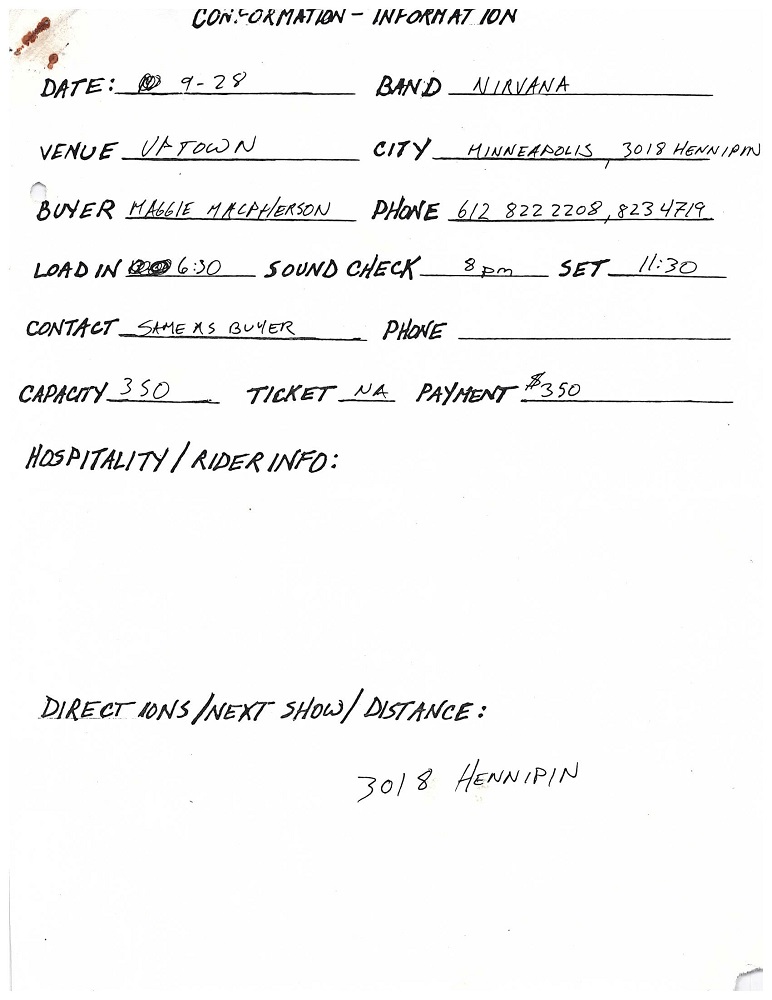 CONFORMATION - INFORMATION
DATE: 9-28 BAND NIRVANA
VENUE UPTOWN CITY MINNEAPOLIS, 3018 HENNIPIN
BUYER MAGGIE MACPHERSON PHONE 612 822 2208, 823 4719
LOAD IN 6:30 SOUND CHECK 8pm SET 11:30
CONTACT SAME AS BUYER PHONE
CAPACITY 350 TICKET NA PAYMENT $350
HOSPITALITY / RIDER INFO:
DIRECTIONS/NEXT SHOW/DISTANCE:
3018 HENNIPIN